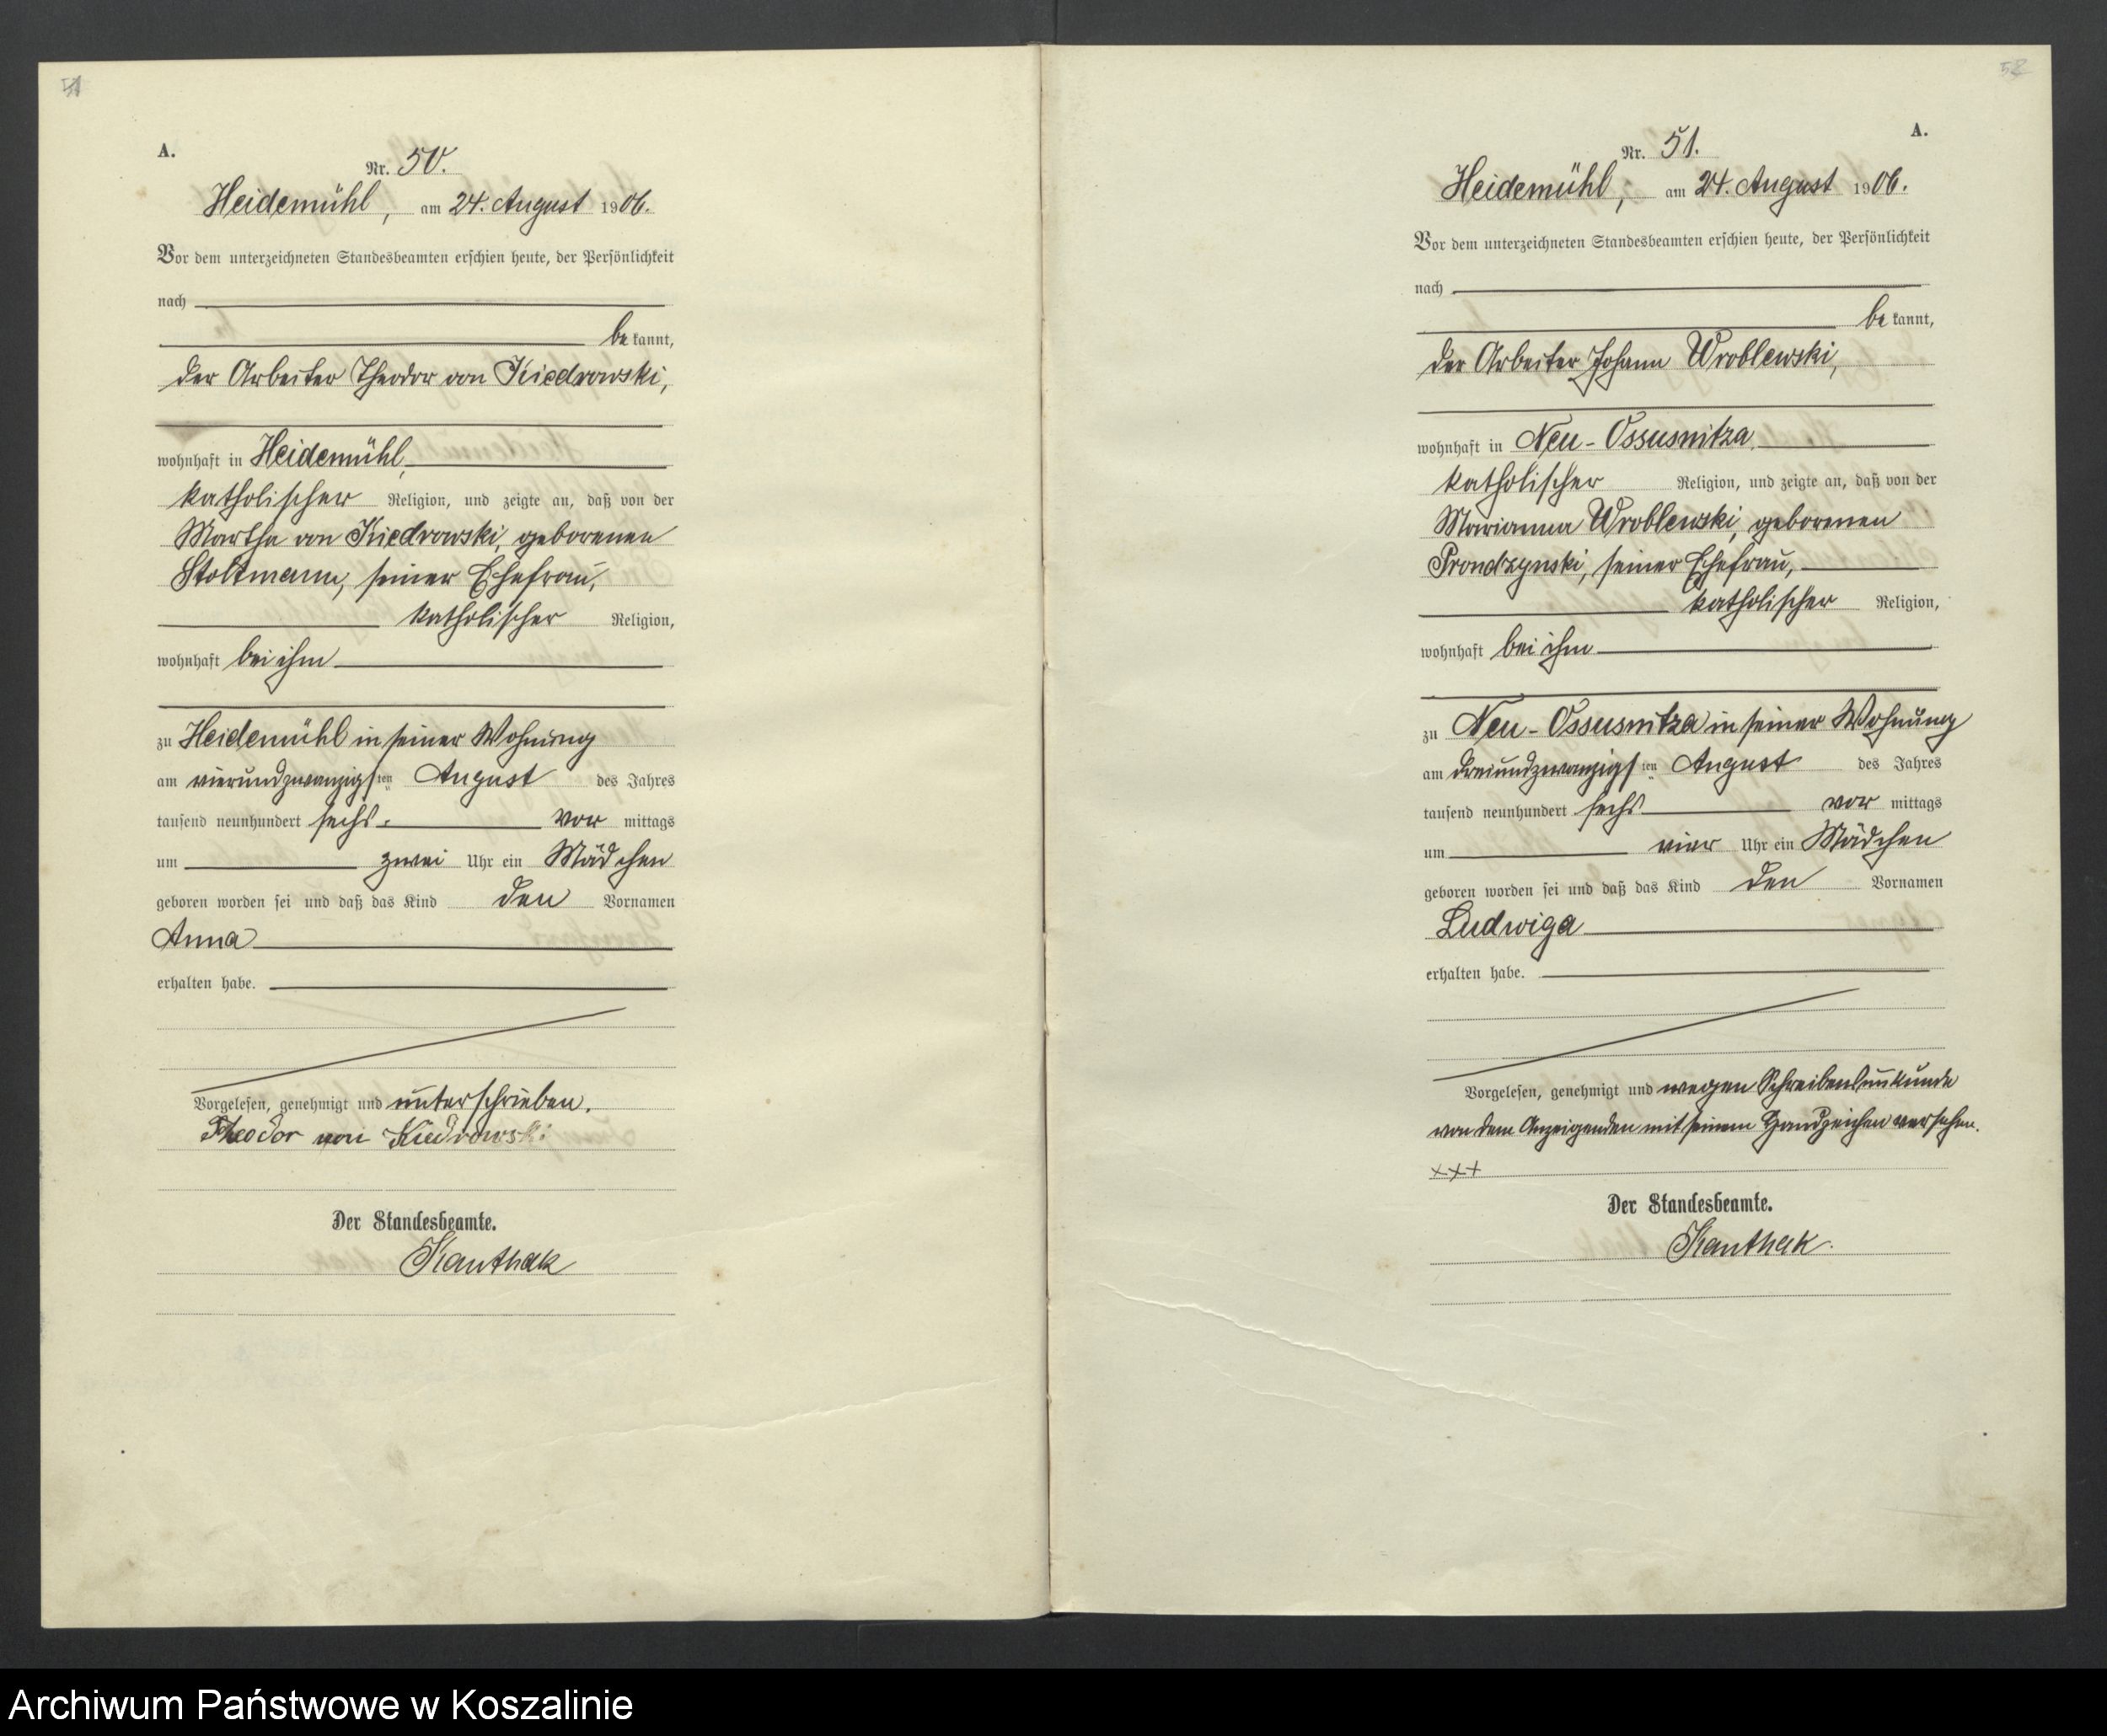 51
A.
Nr. 50.
Heidemühl, am 24. August 1906.
Vor dem unterzeichneten Standesbeamten erschien heute, der Persönlichkeit
nach
be kannt,
der Arbeiter Theodor von Kiedrowski,
wohnhaft in Heidemühl,
katholischer Religion, und zeigte an, daß von der
Martha von Kiedrowski, geborenen
Stoltmann, seiner Ehefrau,
katholischer Religion,
wohnhaft bei ihm
zu Heidemühl in seiner Wohnung
am vierundzwanzigsten August des Jahres
tausend neunhundert sechs vor mittags
um zwei Uhr ein Mädchen
geboren worden sei und daß das Kind den Vornamen
Anna
erhalten habe.
Vorgelesen, genehmigt und unterschrieben.
Theodor von Kiedrowski
Der Standesbeamte.
Kanthak
52
A.
Nr. 51.
Heidemühl, am 24. August 1906.
Vor dem unterzeichneten Standesbeamten erschien heute, der Persönlichkeit
nach
be kannt,
der Arbeiter Johann Wroblewski,
wohnhaft in Neu-Ossusnitza
katholischer Religion, und zeigte an, daß von der
Marianna Wroblewski, geborenen
Prondzynski, seiner Ehefrau,
katholischer Religion,
wohnhaft bei ihm
zu Neu-Ossusnitza in seiner Wohnung
am dreiundzwanzigsten August des Jahres
tausend neunhundert sechs vor mittags
um vier Uhr ein Mädchen
geboren worden sei und daß das Kind den Vornamen
Ludwiga
erhalten habe.
Vorgelesen, genehmigt und wegen Schreibensunkunde
von dem Anzeigenden mit seinem Handzeichen versehen.
+++
Der Standesbeamte.
Kanthak.
Archiwum Państwowe w Koszalinie